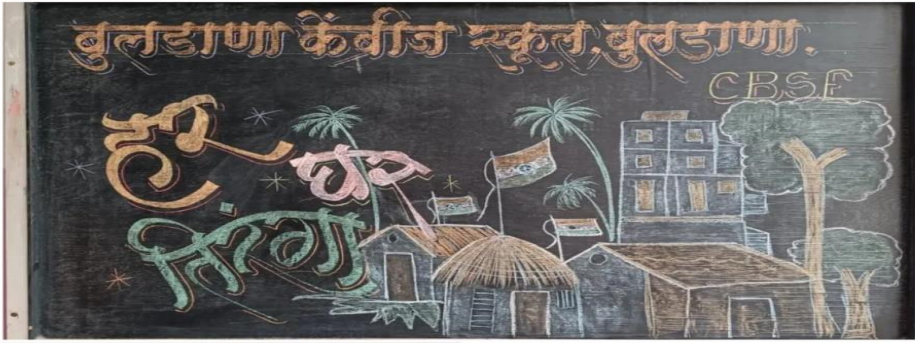 बुलडाणा केंब्रीज स्कूल, बुलडाणा.
CBSE
हर
घर
तिरंगा